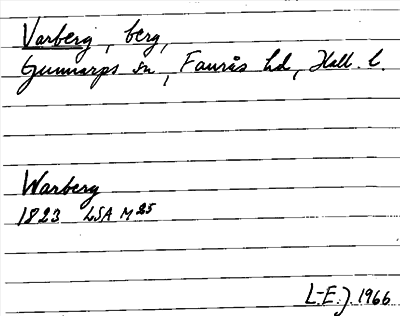 Varberg, berg,
Gunnarps sn, Faurås hd, Hall. l.
Warberg
1823 LSA M25
L-E.J. 1966